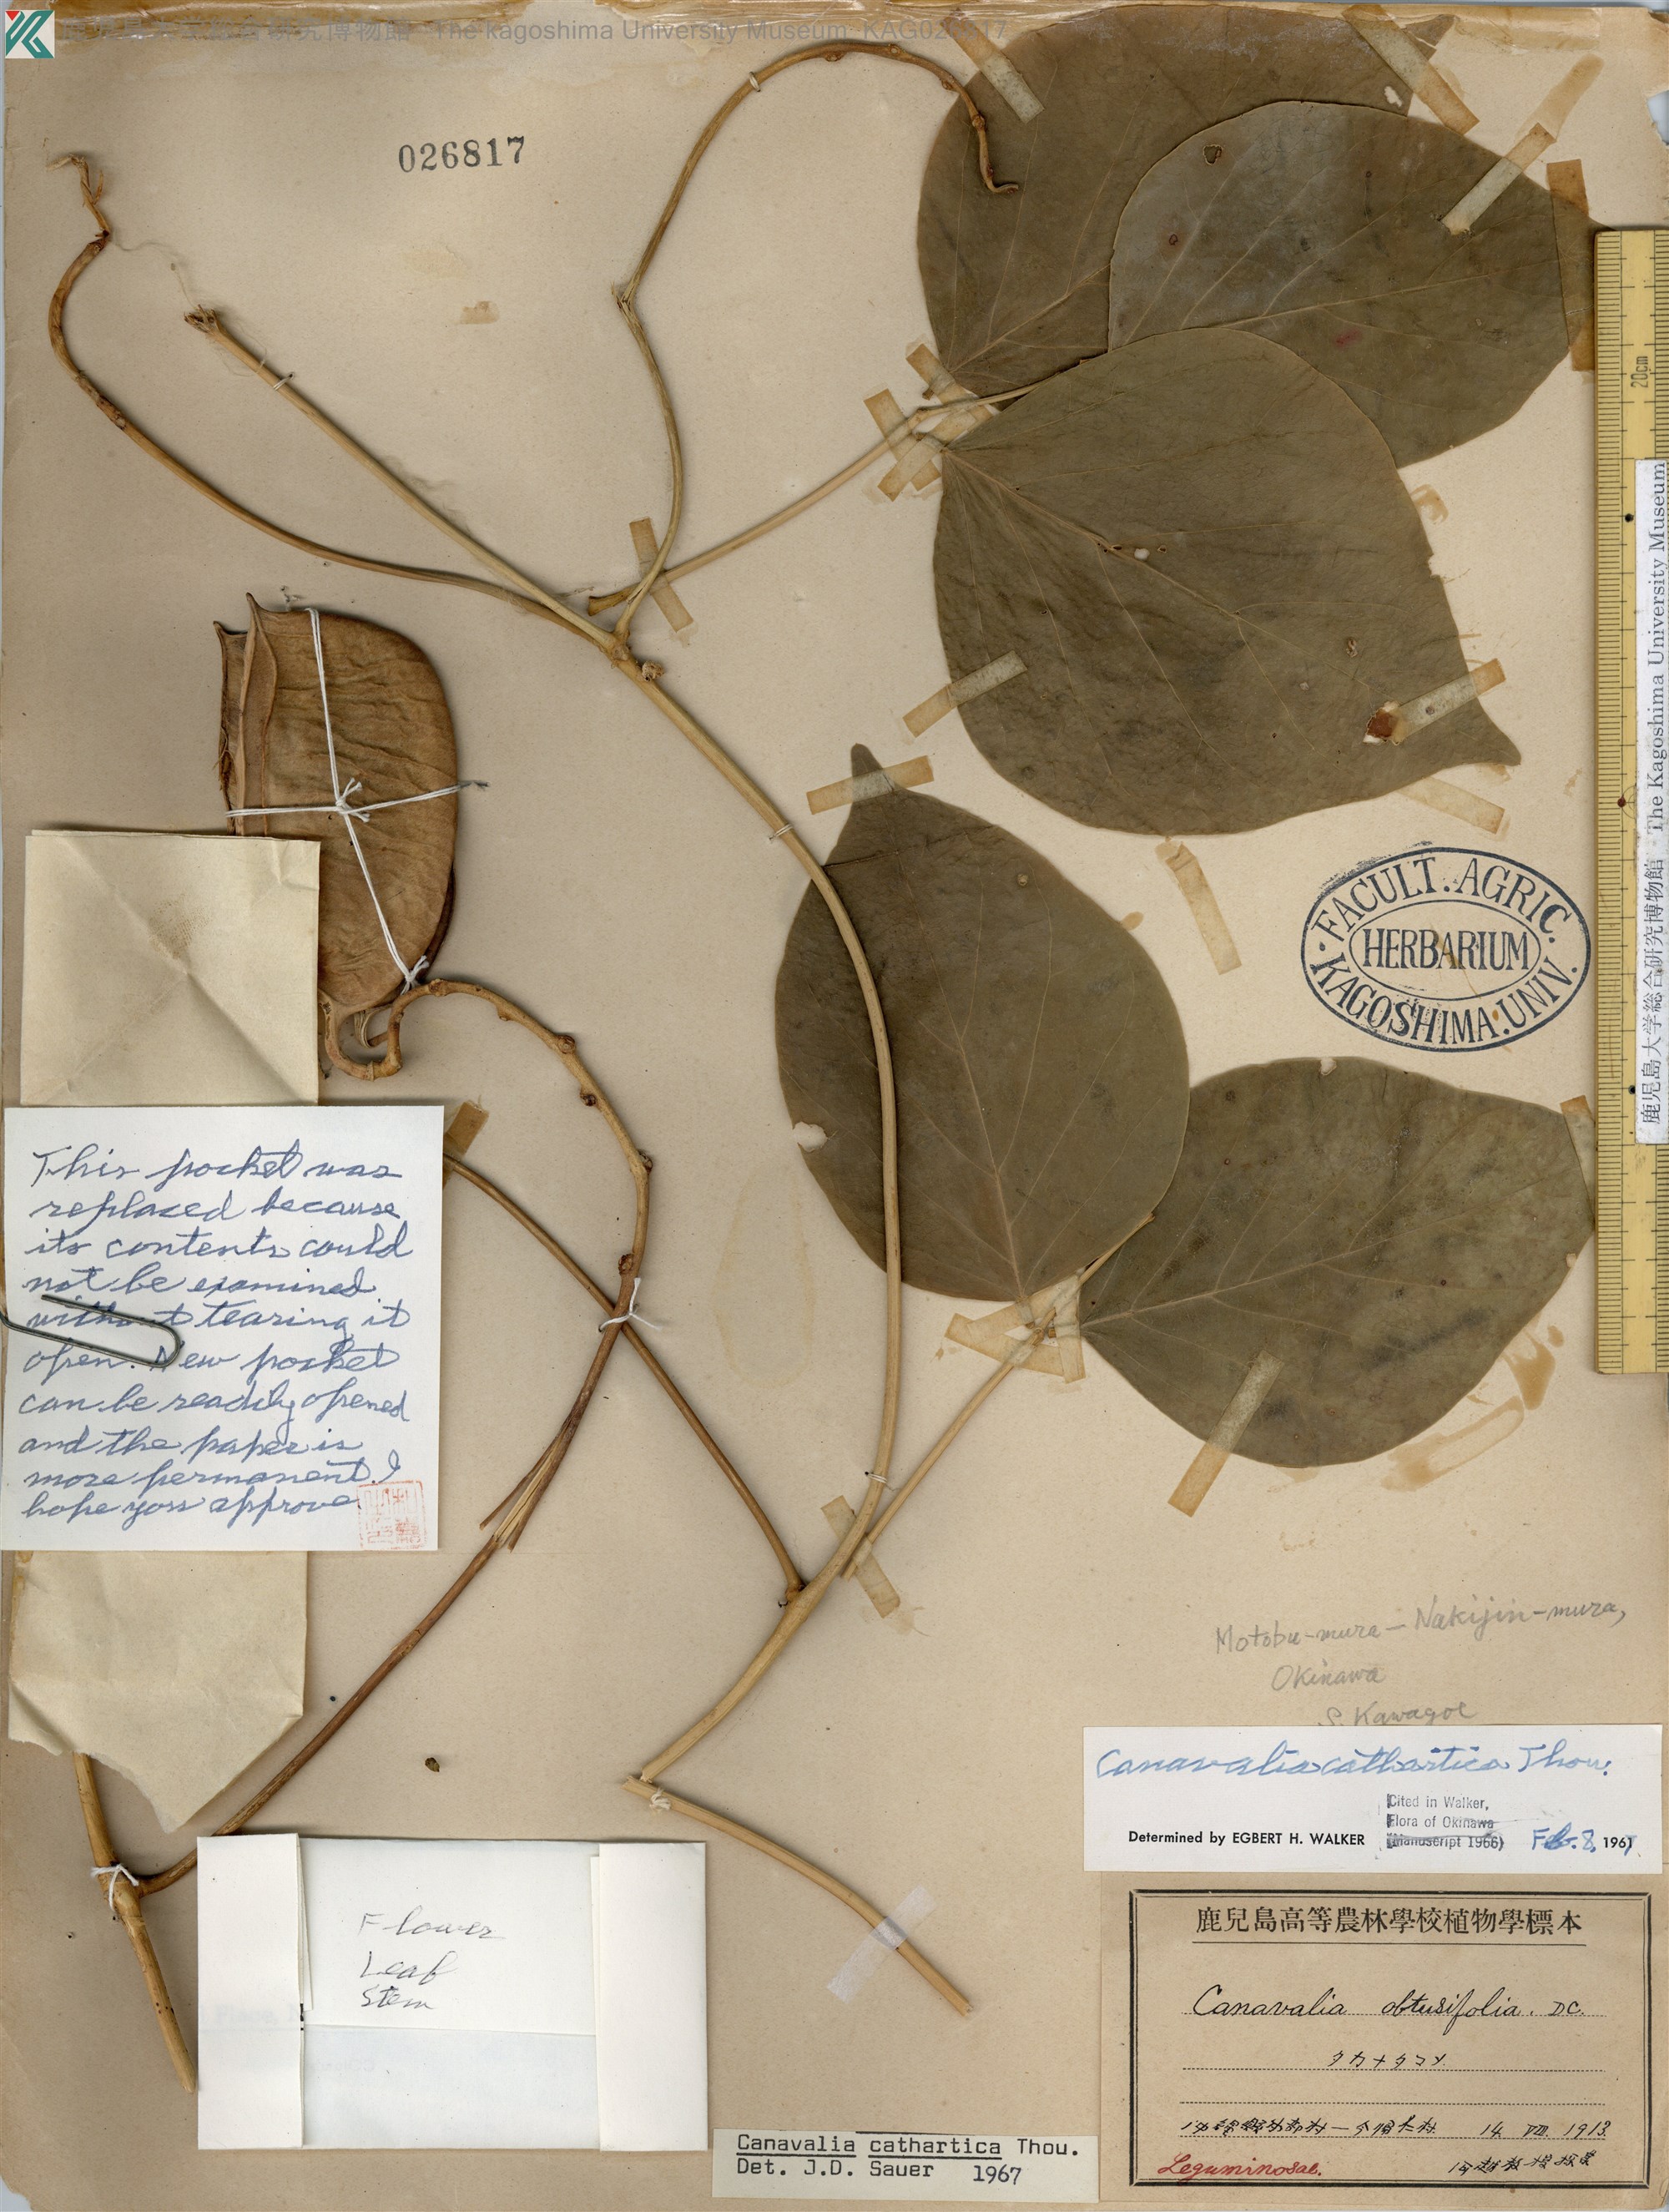 鹿児島大学総合研究博物館 The kagoshima University Museum KAG026817
026817
20cm
鹿児島大学総合研究博物館 The Kagoshima University Museum
FACULT. AGRIC.
HERBARIUM
KAGOSHIMA. UNIV.
This pocket was
replaced because
its contents could
not be examined
without tearing it
open. New pocket
can be readily opened
and the paper is
more permanent. I
hope you approve
Motobu-mura — Nakijin-mura,
Okinawa
S. Kawagoe
Canavalia cathartica Thou.
Cited in Walker,
Flora of Okinawa
(Manuscript 1966)
Determined by EGBERT H. WALKER Feb. 8, 1967
鹿兒島高等農林學校植物學標本
Canavalia obtusifolia. DC.
タカナタマメ
沖縄縣本部村—今帰仁村 14 VIII 1913
Leguminosae.
Flower
Leaf
Stem
Canavalia cathartica Thou.
Det. J.D. Sauer 1967